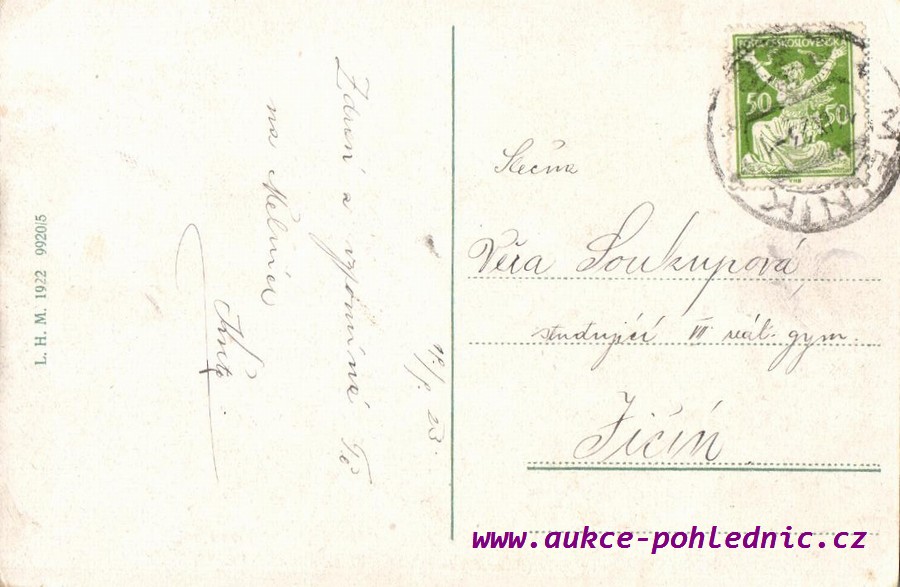 L. H. M. 1922 9920/5
Zdraví a vzpomíná Tě
na Mělníce
POŠTA ČESKOSLOVENSKÁ
50 50
MĚLNÍK
Slečna
Věra Soukupová
studující VI reál. gym.
Jičín
www.aukce-pohlednic.cz